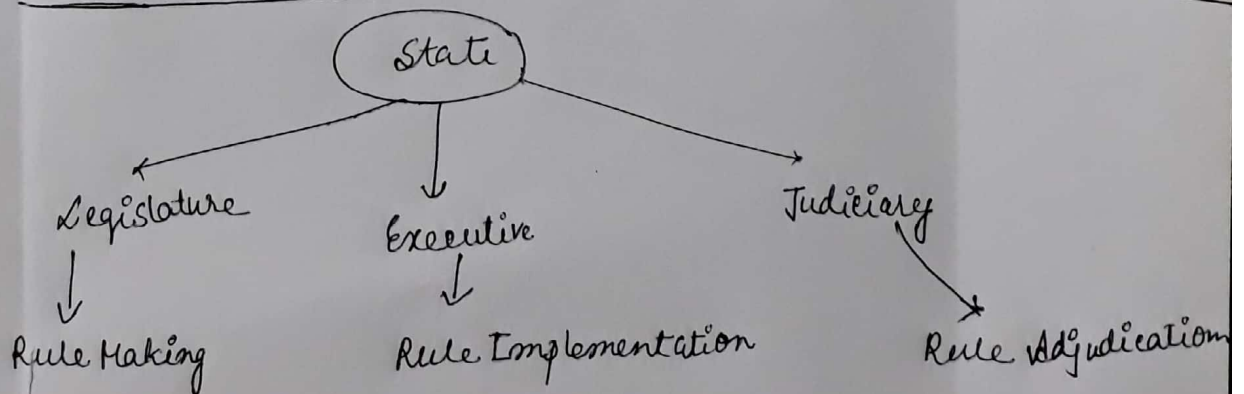 State
Legislature
Executive
Judiciary
Rule Making
Rule Implementation
Rule Adjudication